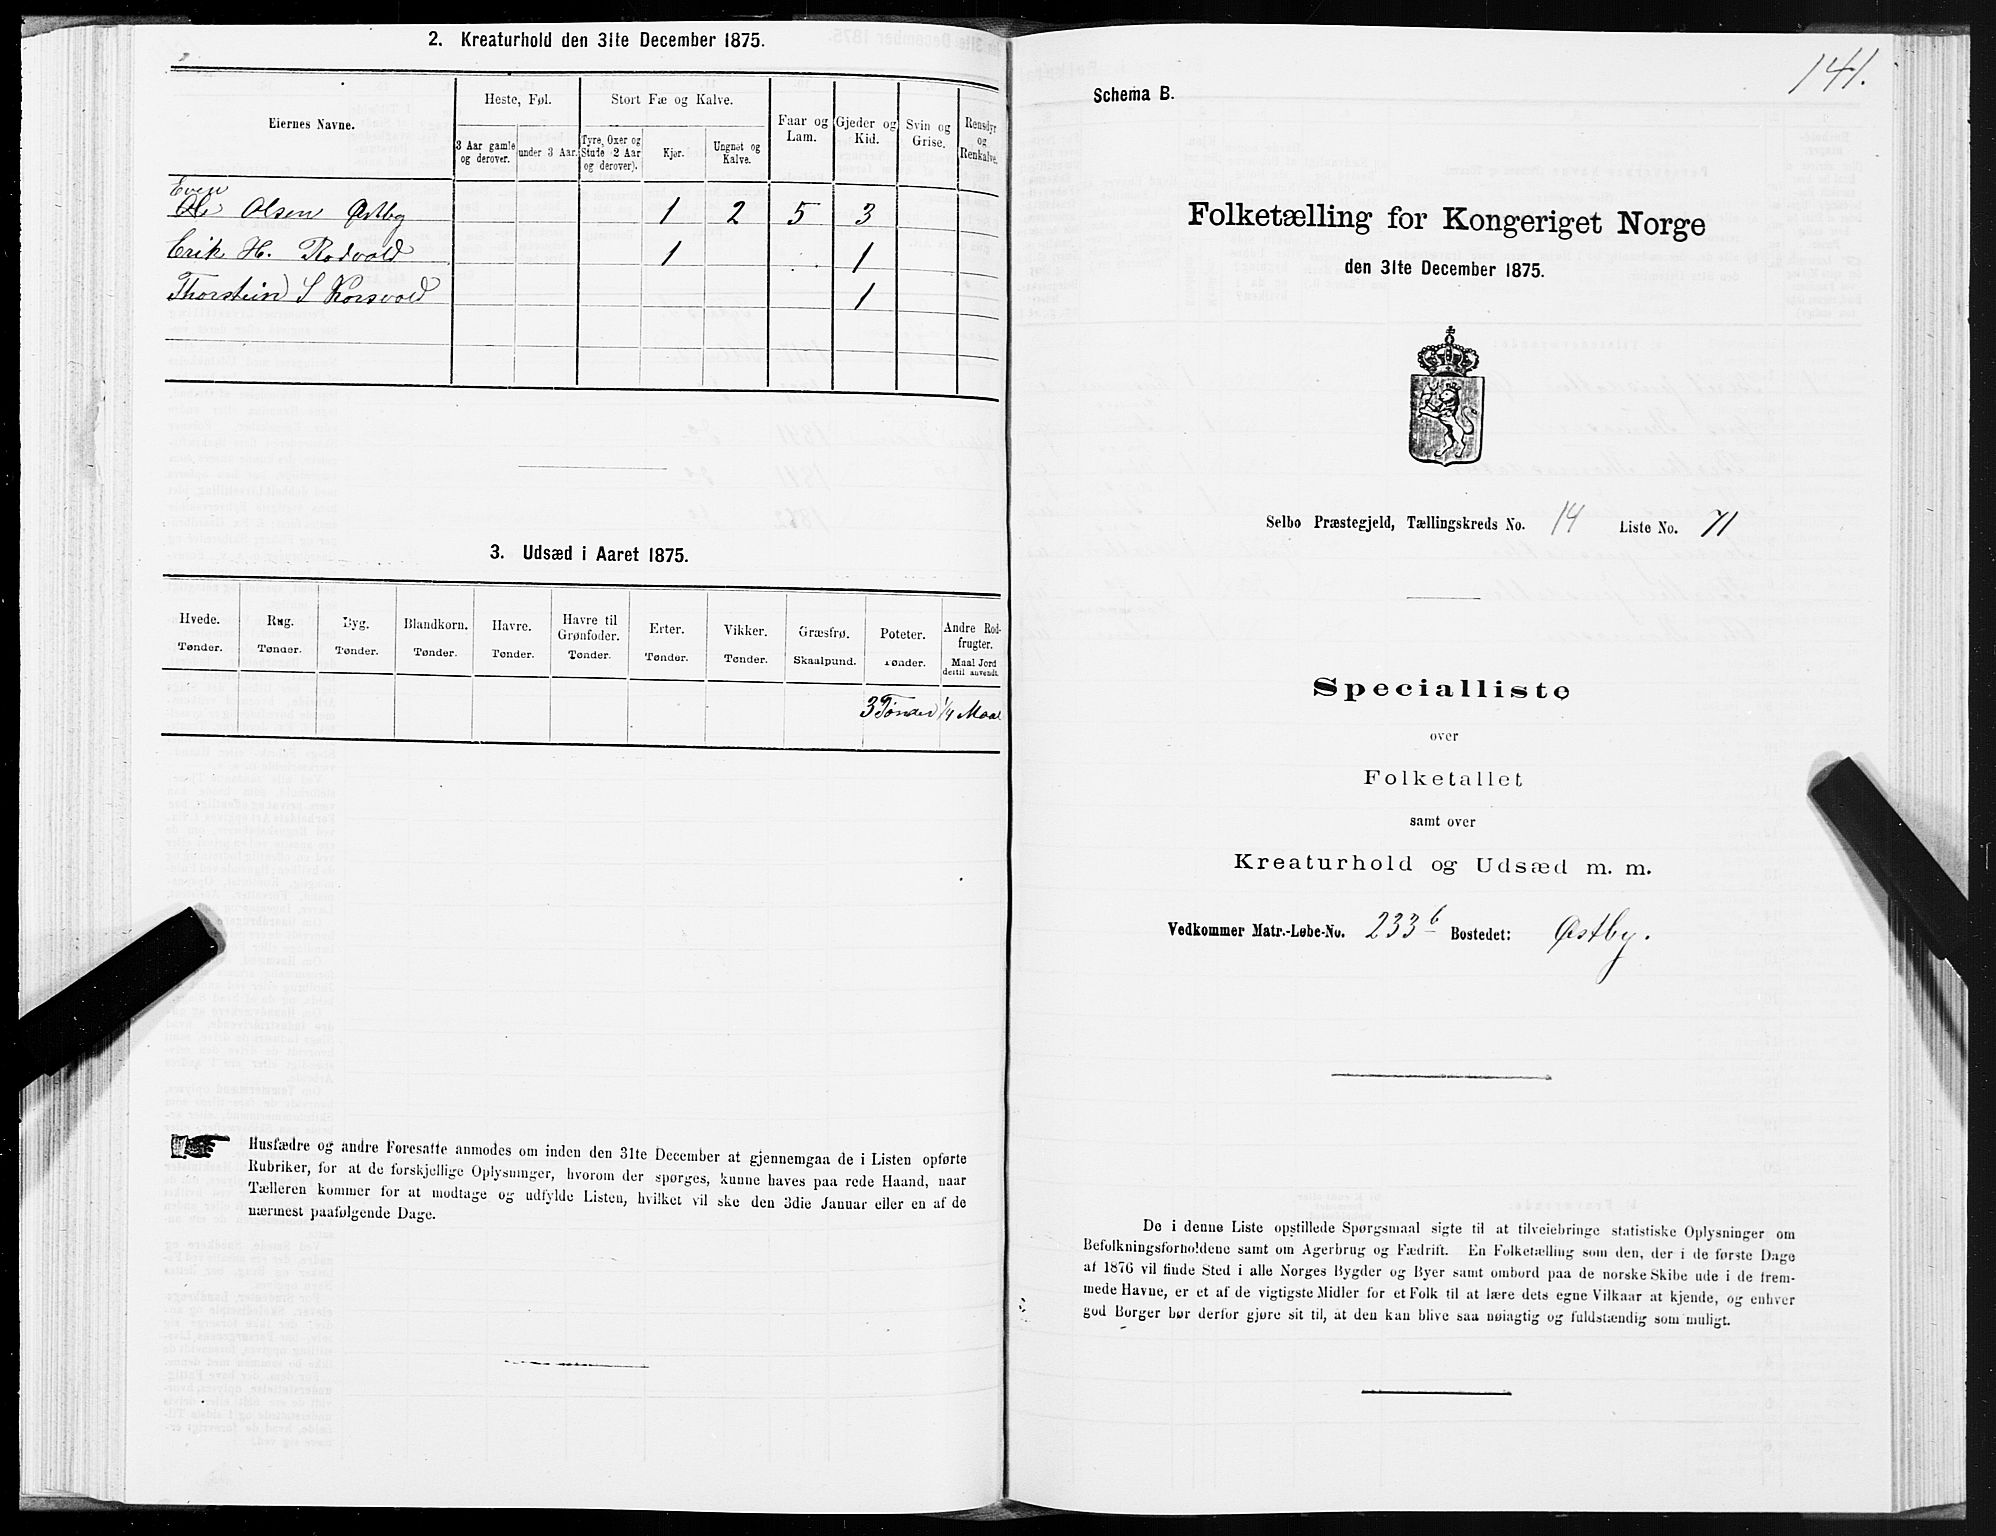 2. Kreaturhold den 31te December 1875.
Eiernes Navne.
Heste, Føl.
Stort Fæ og Kalve.
Faar og Lam.
Gjeder og Kid.
Svin og Grise.
Rensdyr og Renkalve.
3 Aar gamle og derover.
under 3 Aar.
Tyre, Oxer og Stude 2 Aar og derover).
Kjør.
Ungnøt og Kalve.
Even
Ole Olsen Østby 1 2 5 3
Erik H. Rodvold 1 1
Thorstein S Korsvold 1
3. Udsæd i Aaret 1875.
Hvede. Rug. Byg. Blandkorn. Havre. Havre til Grønfoder. Erter. Vikker. Græsfrø. Poteter. Andre Rodfrugter.
Tønder. Tønder. Tønder. Tønder. Tønder. Tønder. Tønder. Tønder. Skaalpund. Tønder. Maal Jord dertil anvendt.
3 Tønder 1/4 Maal
Husfædre og andre Foresatte anmodes om inden den 31te December at gjennemgaa de i Listen opførte
Rubriker, for at de forskjellige Oplysninger, hvorom der spørges, kunne haves paa rede Haand, naar
Tælleren kommer for at modtage og udfylde Listen, hvilket vil ske den 3die Januar eller en af de
nærmest paafølgende Dage.
141.
Schema B.
Folketælling for Kongeriget Norge
den 31te December 1875.
Selbo Præstegjeld, Tællingskreds No. 14 Liste No. 71
Specialliste
over
Folketallet
samt over
Kreaturhold og Udsæd m. m.
Vedkommer Matr.-Løbe-No. 233b Bostedet: Østby.
De i denne Liste opstillede Spørgsmaal sigte til at tilveiebringe statistiske Oplysninger om
Befolkningsforholdene samt om Agerbrug og Fædrift. En Folketælling som den, der i de første Dage
af 1876 vil finde Sted i alle Norges Bygder og Byer samt ombord paa de norske Skibe ude i de frem-
mede Havne, er et af de vigtigste Midler for et Folk til at lære dets egne Vilkaar at kjende, og enhver
god Borger bør derfor gjøre sit til, at den kan blive saa nøiagtig og fuldstændig som muligt.